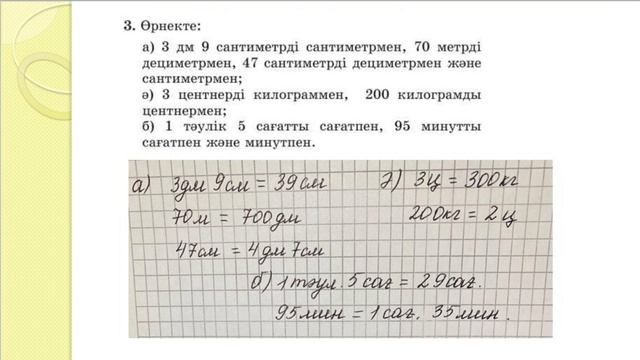 3. Өрнекте:
а) 3 дм 9 сантиметрді сантиметрмен, 70 метрді
дециметрмен, 47 сантиметрді дециметрмен және
сантиметрмен;
ә) 3 центнерді килограммен, 200 килограмды
центнермен;
б) 1 тәулік 5 сағатты сағатпен, 95 минутты
сағатпен және минутпен.
а) 3дм 9см = 39см
70м = 700дм
47см = 4дм 7см
ә) 3ц = 300кг
200кг = 2ц
б) 1тәул. 5сағ = 29сағ.
95мин = 1сағ. 35мин.